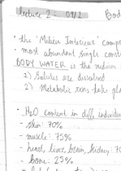 Lecture 2 - 09/2 Bod
• the 'Milieu Interieur' comp
• most abundant single const
BODY WATER is the medium
1) Solutes are dissolved
2) Metabolic rxns take pla
• H₂O content in diff individu
- skin: 70%
- muscle: 75%
- heart, liver, brain, kidney: 7
- bone: 25%